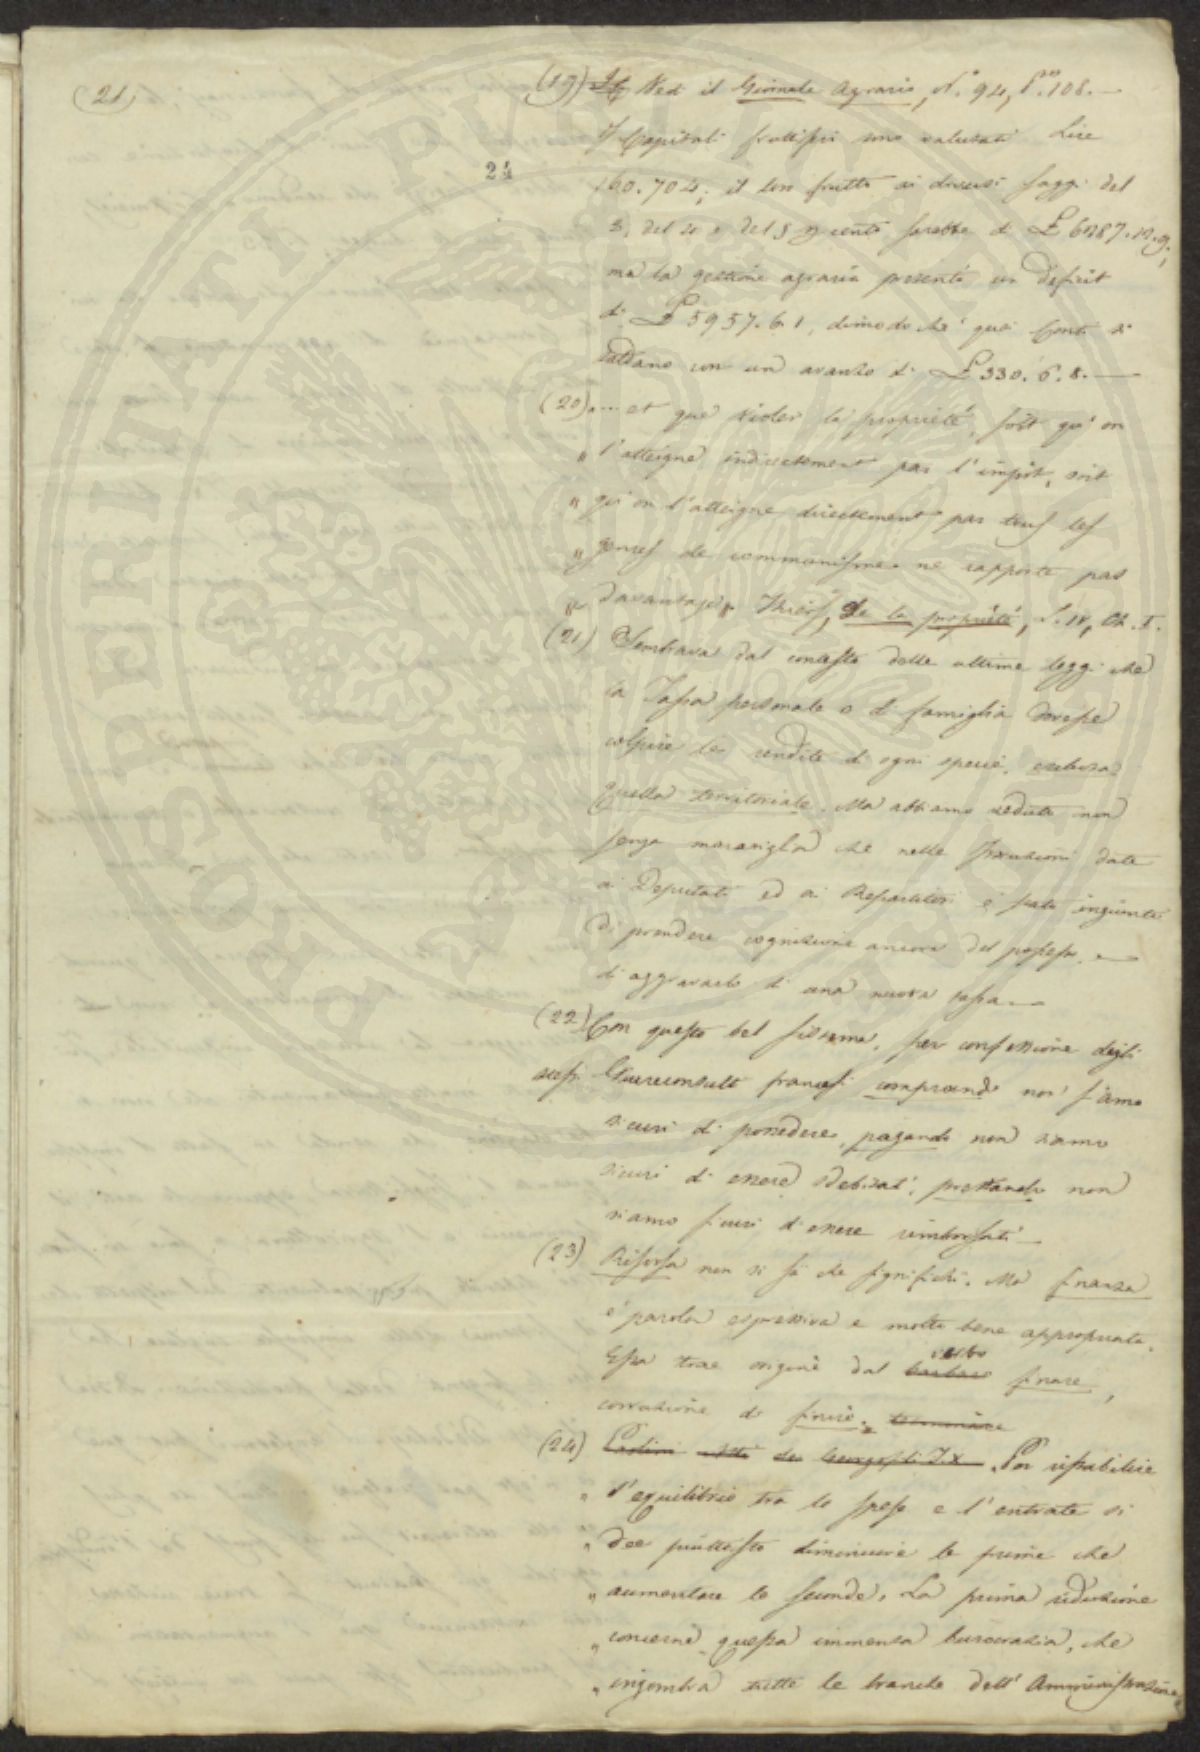 (21)
24
(19) Ved. il Giornale Agrario, N.° 94, P. 108.—
I Capitali fruttiferi sono valutati Lire
160.704; il lor frutto ai diversi saggi del
3, del 4 e del 5 p cento sarebbe di £ 6287.12.9;
ma la gestione agraria presentò un deficit
di £ 5957.6.1, dimodoché quei Conti si
saldano con un avanzo di £ 330.6.8.—
(20) „... et que violer la propriété, soit qu'on
„ l'atteigne indirectement par l'impôt, soit
„ qu'on l'atteigne directement par tous les
„ genres de communisme ne rapporte pas
„ davantage„ Thiers, De la propriété, L. IV, Ch. I.
(21) Sembrava dal contesto delle ultime leggi che
la Tassa personale o di famiglia dovesse
colpire le rendite di ogni specie, esclusa
quella territoriale. Ma abbiamo veduto non
senza maraviglia che nelle Istruzioni date
ai Deputati ed ai Repartitori è stato ingiunto
di prendere cognizione ancora del possesso, e
di aggravarlo di una nuova tassa.—
(22) Con questo bel sistema, per confessione degli
stessi Giureconsulti francesi comprando non siamo
sicuri di possedere, pagando non siamo
sicuri di essere sdebitati, prestando non
siamo sicuri di essere rimborsati.—
(23) Risorsa non si sà che significhi. Ma finanza
è parola espressiva e molto bene appropriata.
Essa trae origine dal barbaro verbo finare,
corruzione di finire, terminare
(24) Per ristabilire
„ l'equilibrio tra le spese e l'entrate si
„ dee piuttosto diminuire le prime che
„ aumentare le seconde. La prima riduzione
„ concerne questa immensa burocrazia, che
„ ingombra tutte le branche dell'Amministrazione
PROSPERITATI PUBLICAE